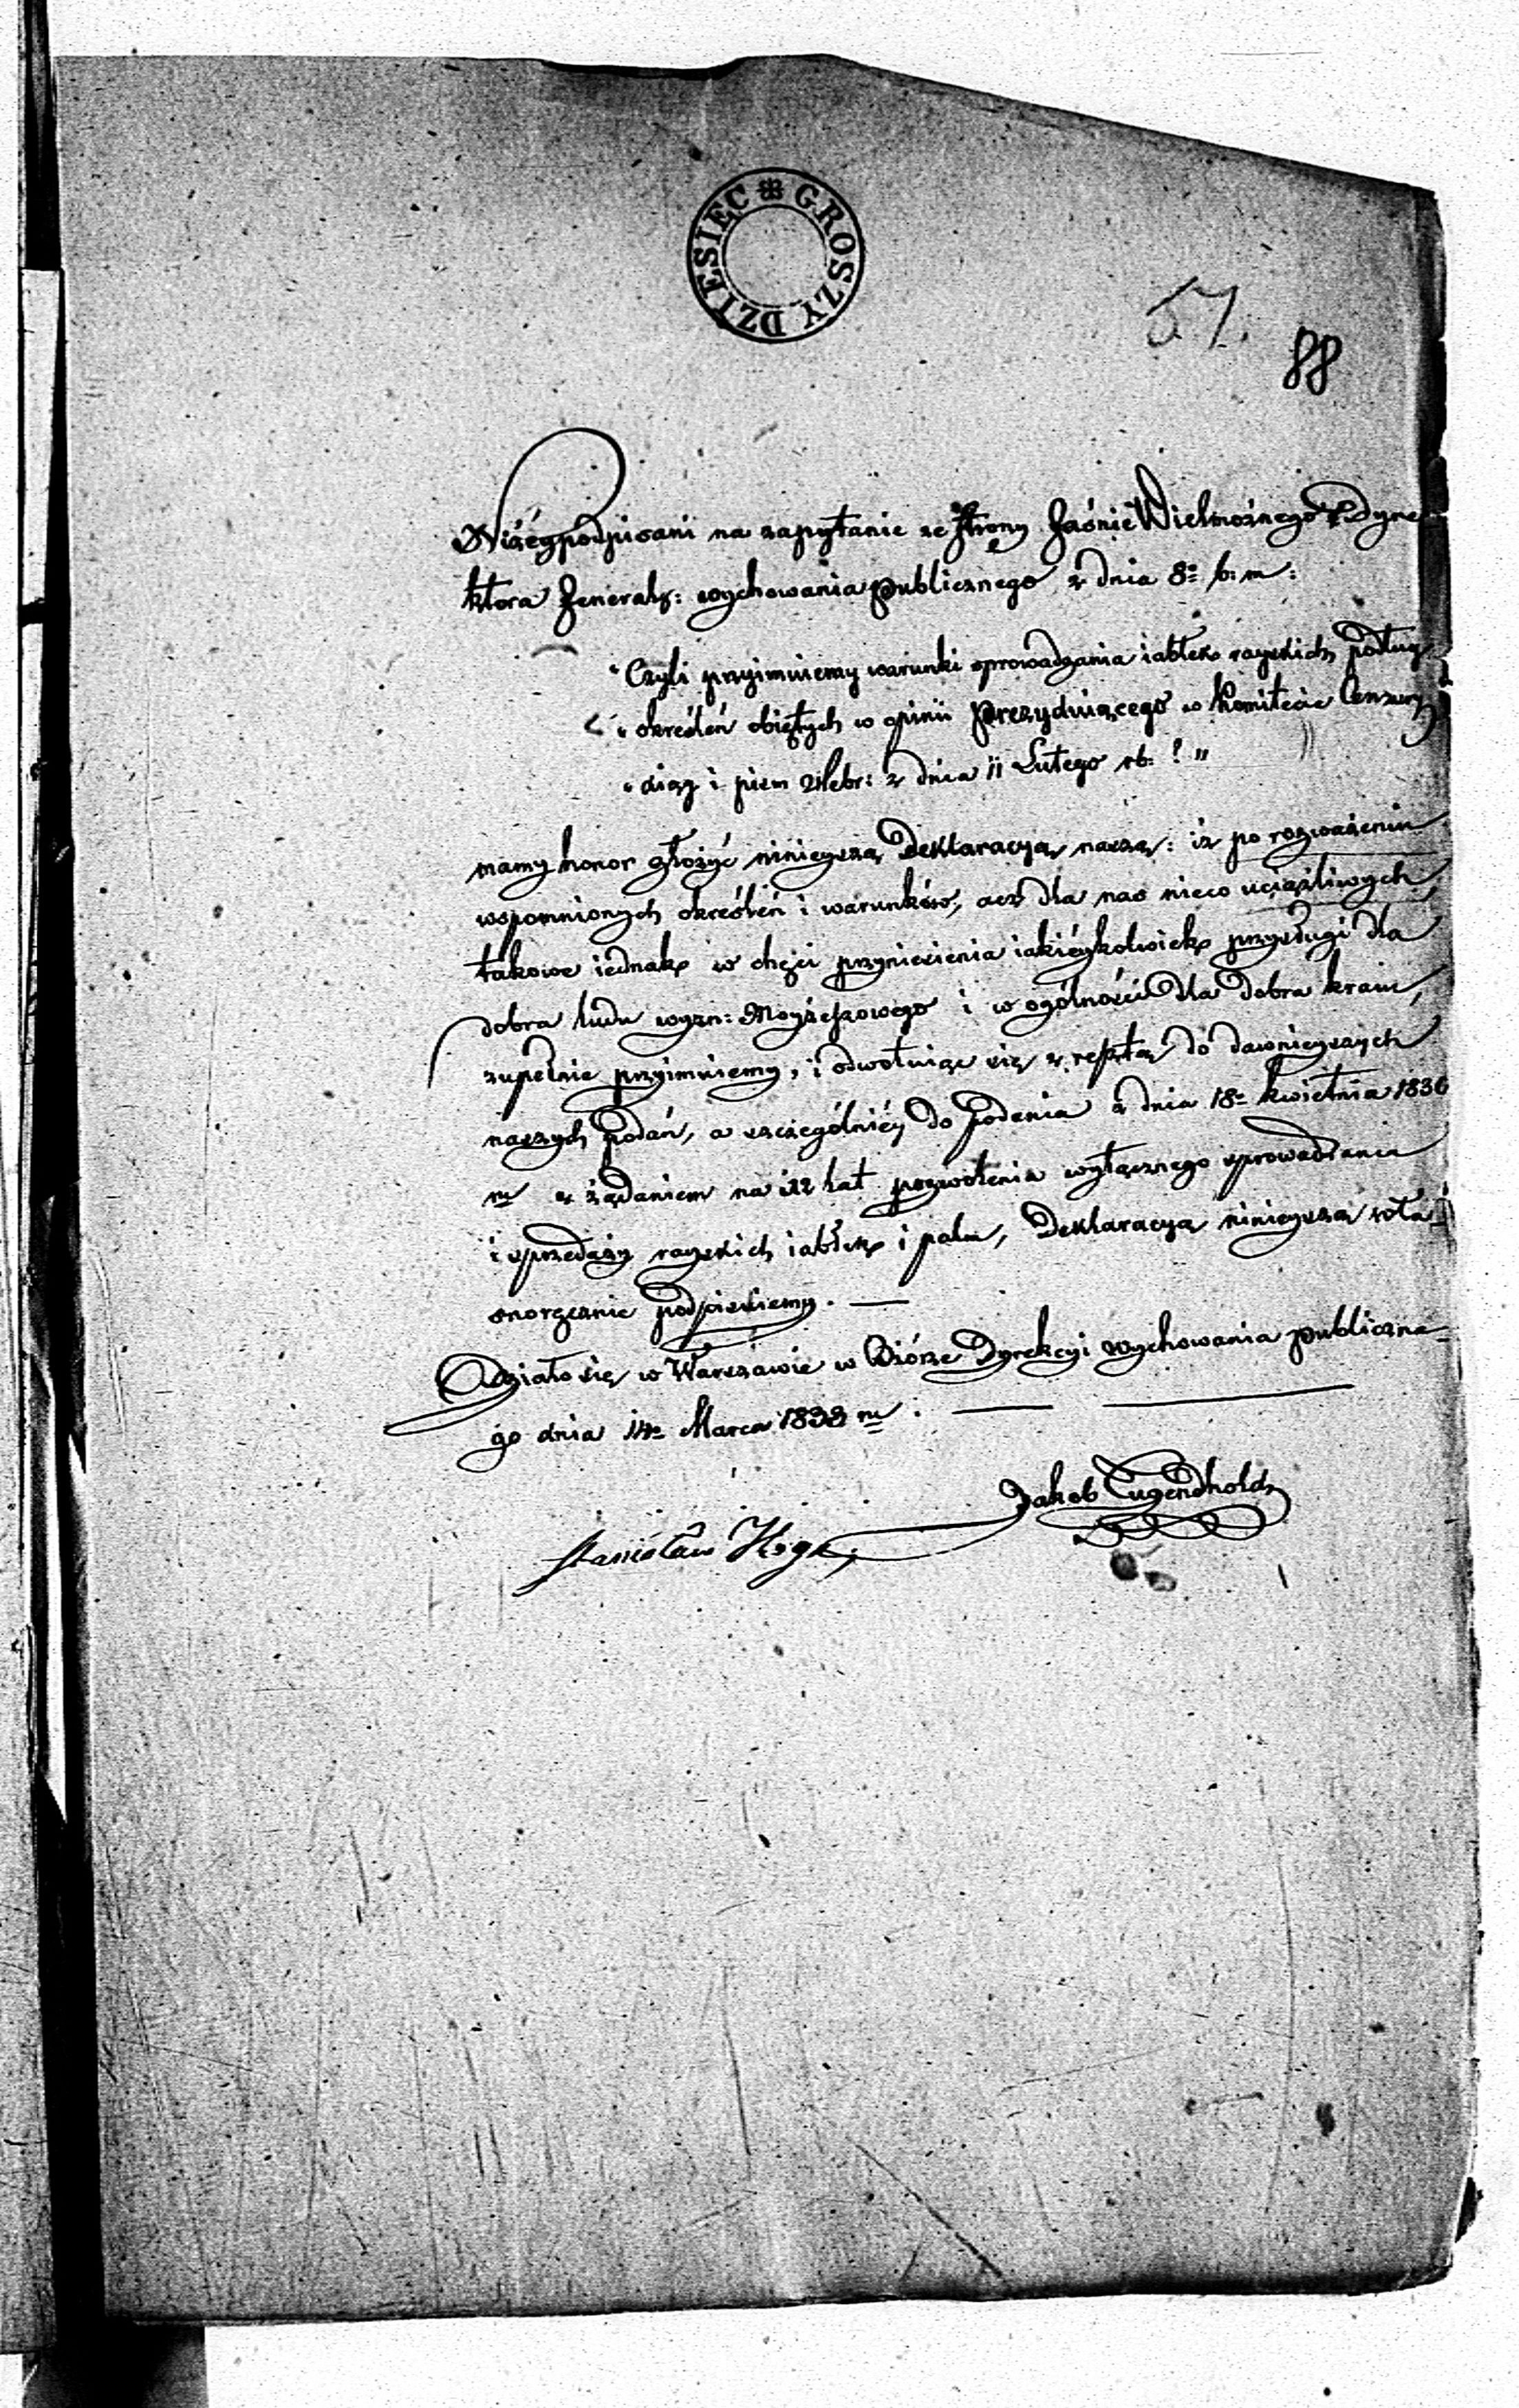 GROSZY DZIESIĘC
57.
88
Niżéypodpisani na zapytanie ze strony Jaśnie Wielmożnego Dyre
ktora Jeneraln: wychowania publicznego z dnia 8º b: m:
"Czyli przyimuiemy warunki sprowadzania iabłek rayskich podług
"określeń obiętych w opinii Prezyduiącego w Komitecie Cenzury
"Xiąg i pism Hebr: z dnia 11 Lutego rb: ?"
mamy honor złożyć ninieyszą Deklaracyą naszą: iż po rozważeniu
wspomnionych określeń i warunków, acz dla nas nieco uciążliwych,
takowe iednak w chęci przyniesienia iakiéykolwiek przysługi dla
dobra ludu wyzn: Moyżeszowego i w ogólności dla dobra kraiu,
zupełnie przyimuiemy, i odwołuiąc się z resztą do dawnieyszych
naszych podań, a szczególniéy do podania z dnia 18º kwietnia 1836
r. z żądaniem na 12 lat pozwolenia wyłącznego sprowadzania
i sprzedaży rayskich iabłek i palm, Deklaracyą ninieyszą wła
snoręcznie podpisuiemy. —
Działo się w Warszawie w Biórze Dyrekcyi wychowania publiczne-
go dnia 14º Marca 1838 r. — —
Jakob Tugendhold
Stanisław Hoge,